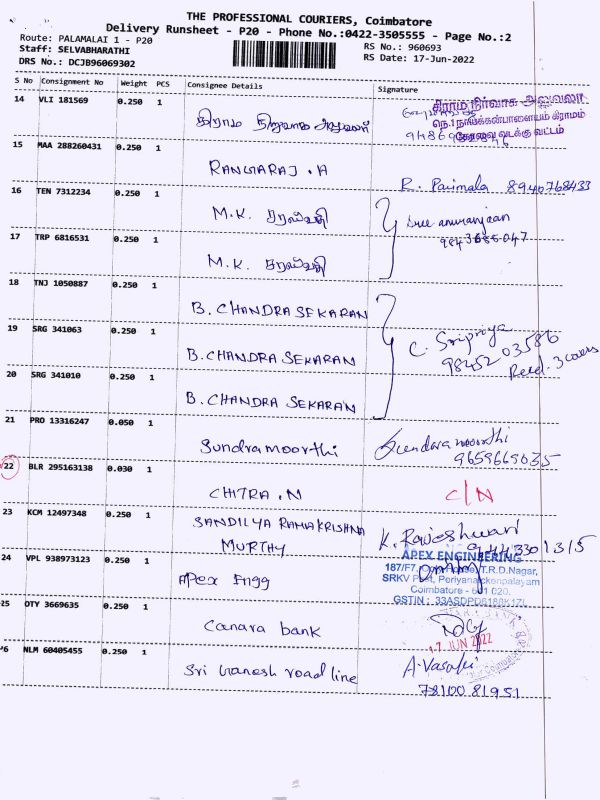 THE PROFESSIONAL COURIERS, Coimbatore
Delivery Runsheet - P20 - Phone No.:0422-3505555 - Page No.:2
Route: PALAMALAI 1 - P20
RS No.: 960693
Staff: SELVABHARATHI
RS Date: 17-Jun-2022
DRS No.: DCJB96069302
S No Consignment No Weight PCS Consignee Details Signature
14 VLI 181569 0.250 1
கிராம நிர்வாக அலுவலர்
கிராம நிர்வாக அலுவலர்
நெ.1நாய்க்கன்பாளையம் கிராமம்
கோவை வடக்கு வட்டம்
15 MAA 288260431 0.250 1
RANGARAJ.A
R. Parimala 8940768433
16 TEN 7312234 0.250 1
M.K.
17 TRP 6816531 0.250 1
M.K.
18 TNJ 1050887 0.250 1
B. CHANDRA SEKARAN
19 SRG 341063 0.250 1
B. CHANDRA SEKARAN
C. Sripriya
98452 03586
Recd. 3 covers
20 SRG 341010 0.250 1
B. CHANDRA SEKARAN
21 PRO 13316247 0.050 1
Sundramoorthi
Sundaramoorthi
9659669635
22 BLR 295163138 0.030 1
CHITRA.N
C/N
23 KCM 12497348 0.250 1
SANDILYA RAMAKRISHNA
MURTHY
K. Rajeshwari
9443301315
24 VPL 938973123 0.250 1
Apex Engg
APEX ENGINEERING
187/F7, T.R.D.Nagar,
SRKV Post, Periyanaickenpalayam
Coimbatore - 641 020.
GSTIN :
25 OTY 3669635 0.250 1
Canara bank
17 JUN 2022
26 NLM 60405455 0.250 1
Sri Ganesh road line
A. Vasaki
78100 81951